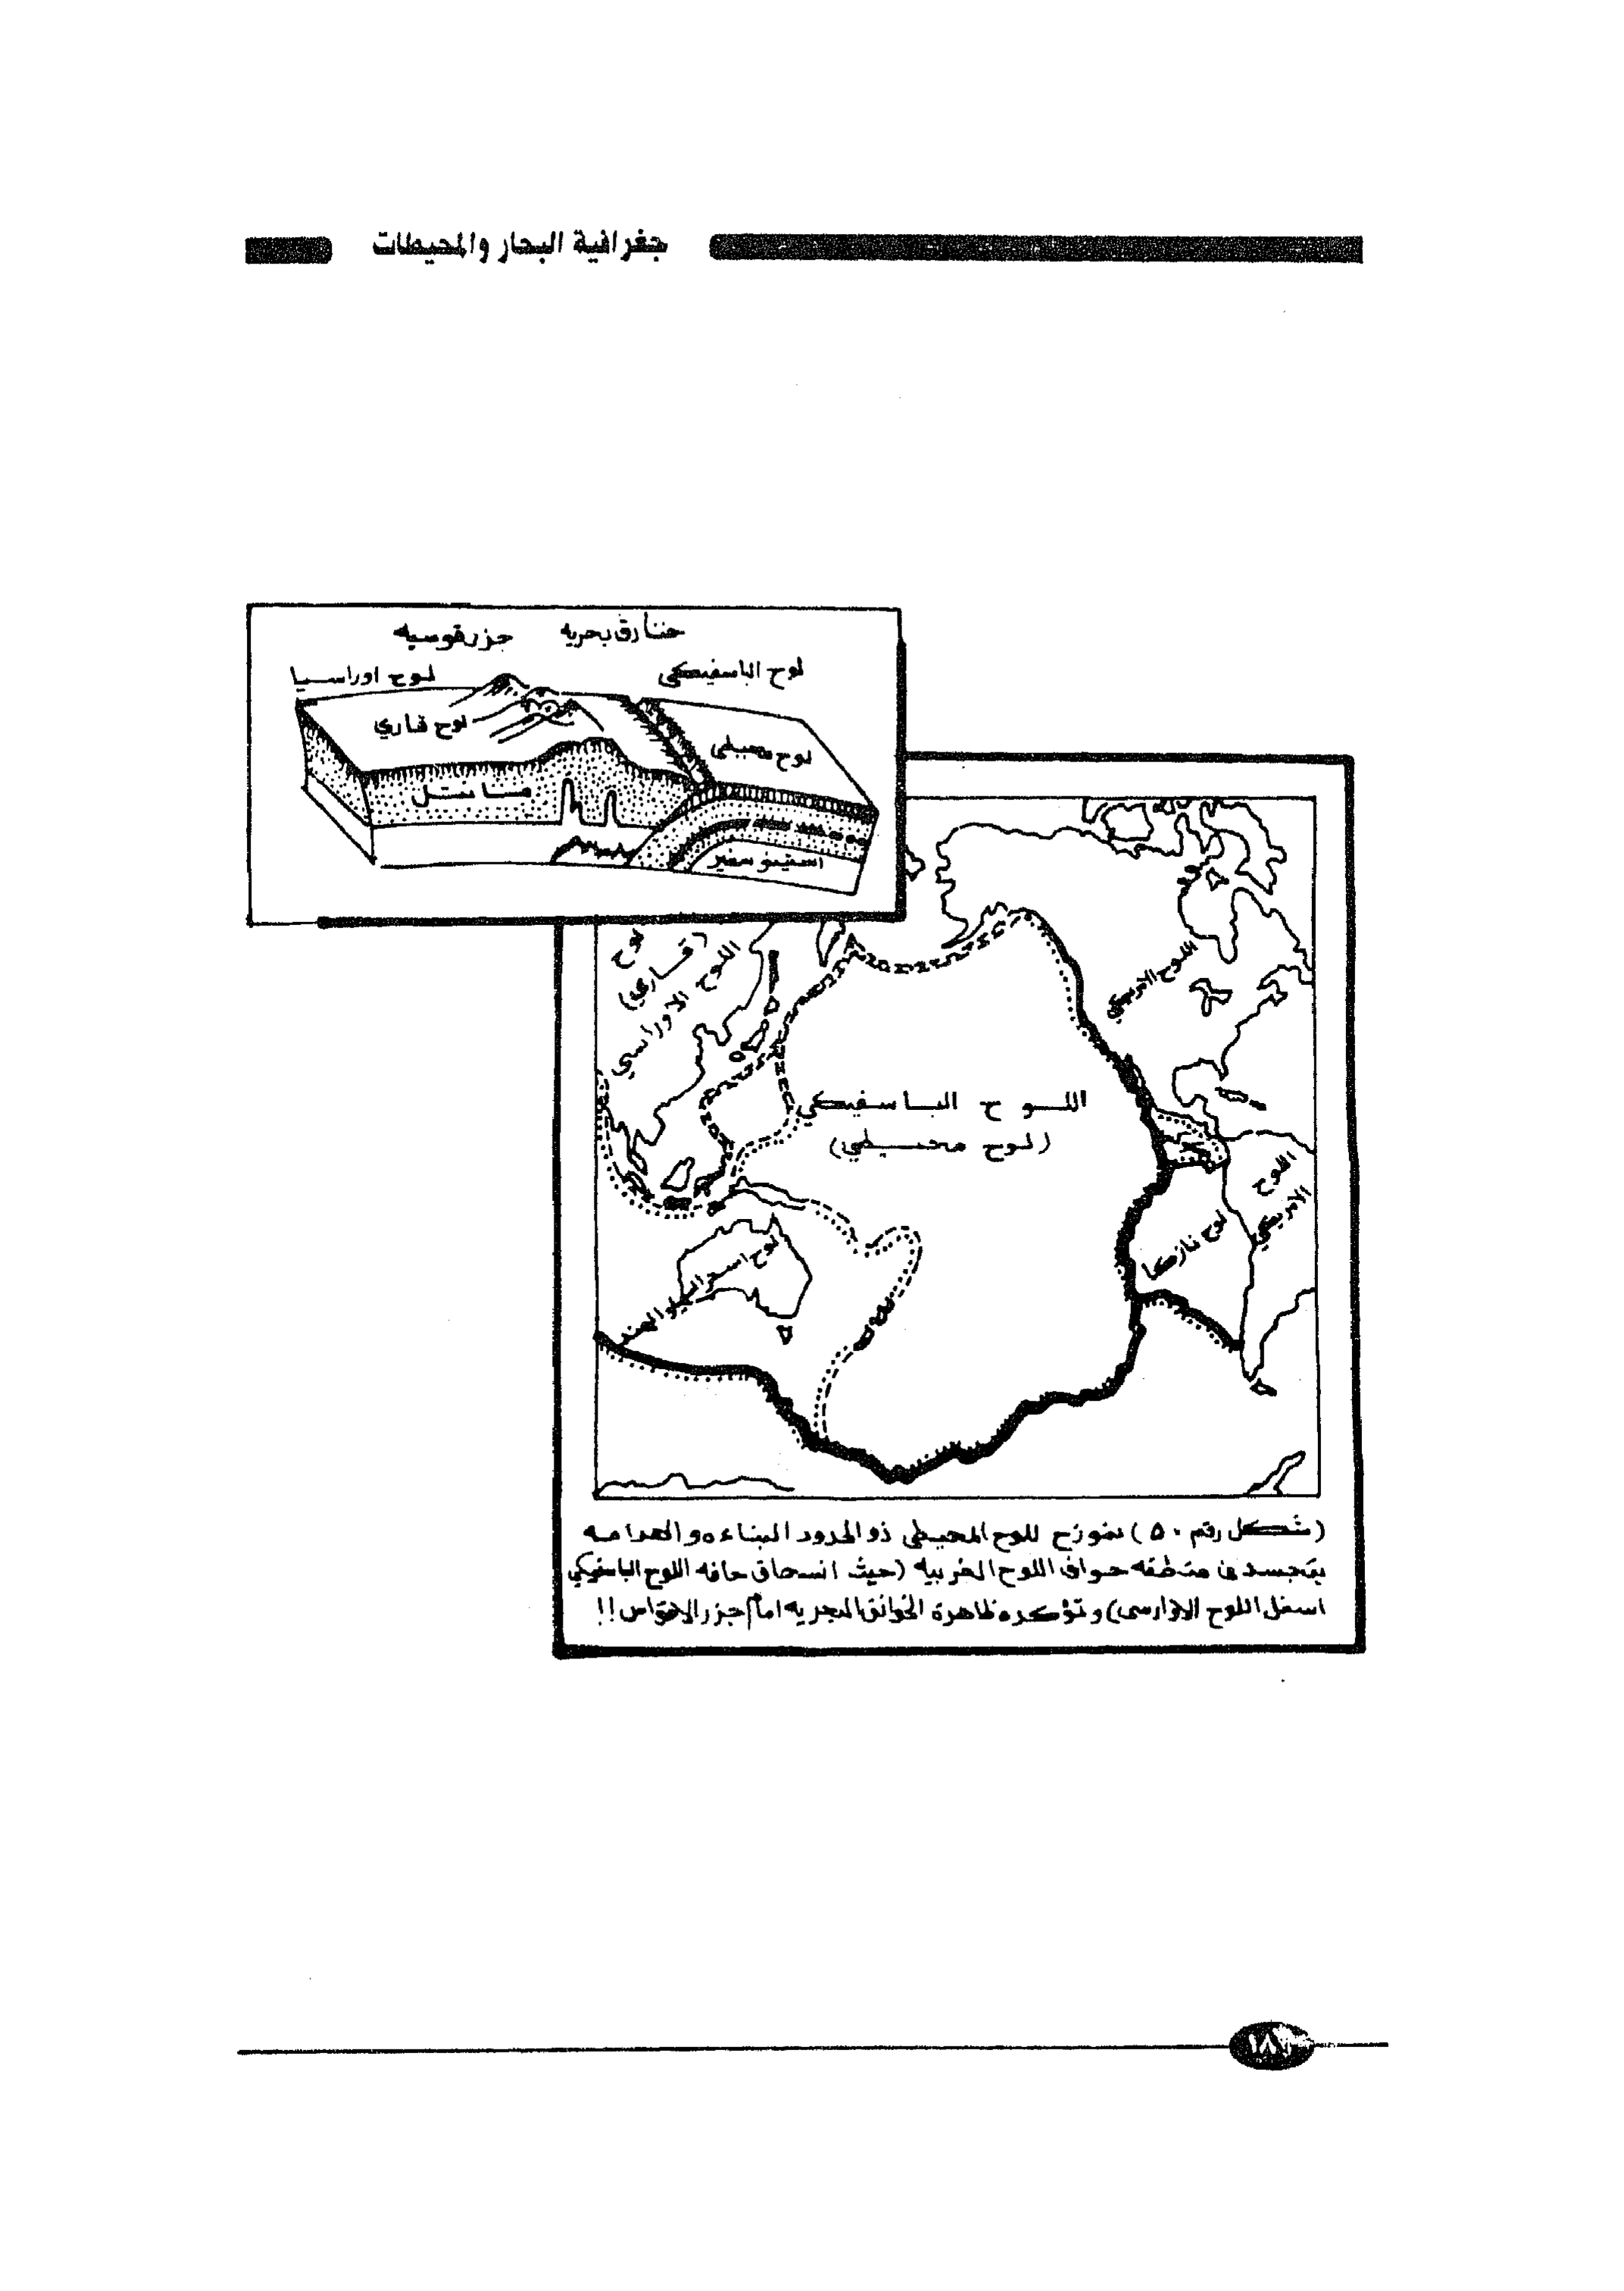 جغرافية البحار والمحيطات
خنادق بحريه
جزر قوسيه
لوح الباسفيكي
لوح اوراسيا
لوح قاري
لوح محيطي
مانتل
استينو سفير
لوح
(قاري)
اللوح الاوراسي
اللوح الامريكي
اللوح الباسفيكي
(لوح محيطي)
اللوح
الامريكي
لوح نازكا
لوح
(شكل رقم ٥٠) نموزج للوح المحيطي ذو الحدود البناءه والهدامه
يتجسد في منطقه حواف اللوح الغربيه (حيث انسحاق حافه اللوح الباسفيكي
اسفل اللوح الاوارسي) وتؤكده ظاهرة الخوانق البحريه امام جزر الاقواس!!